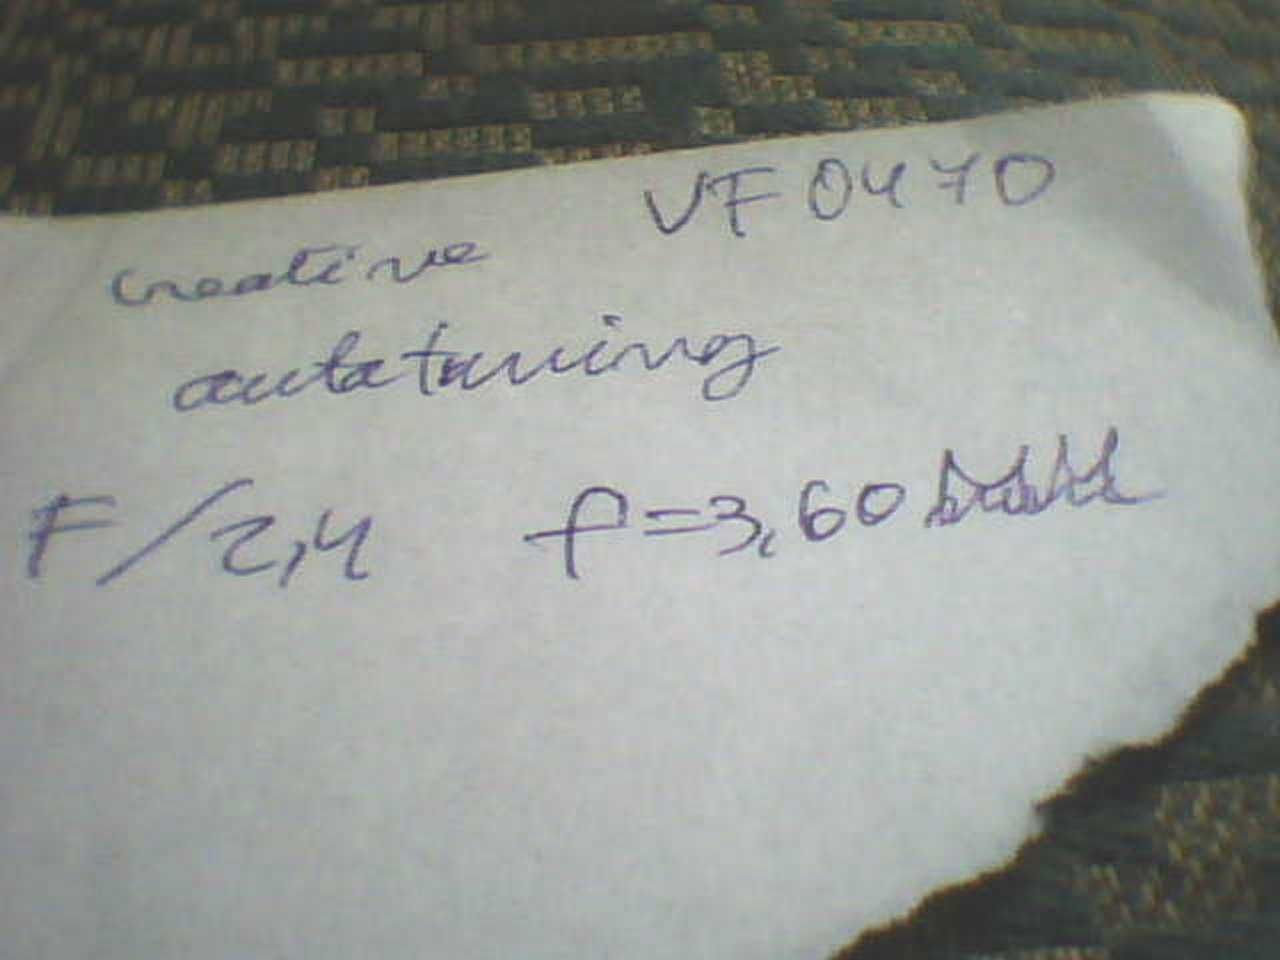 VF0470
creative
autotuning
F/2,4 f=3,60